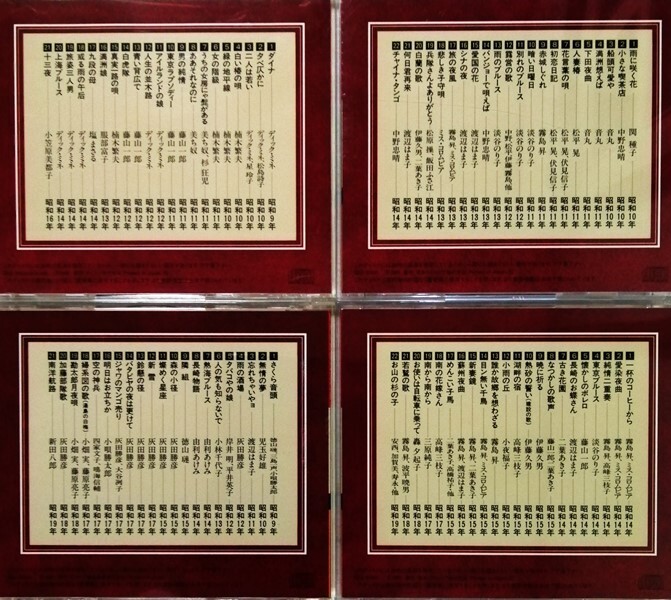 1 ダイナ ディック・ミネ 昭和9年
2 夕べ仄かに ディック・ミネ、松島詩子
3 二人は若い ディック・ミネ、星玲子 昭和10年
4 白い椿の唄 楠木繁夫 昭和10年
5 緑の地平線 楠木繁夫 昭和10年
6 女の階級 楠木繁夫 昭和11年
7 うちの女房にゃ髭がある 美ち奴、杉狂児 昭和11年
8 ああそれなのに 美ち奴 昭和11年
9 男の純情 藤山一郎 昭和11年
10 東京ラプソディー 藤山一郎 昭和11年
11 アイルランドの娘 ディック・ミネ
12 人生の並木路 ディック・ミネ 昭和12年
13 青い背広で 藤山一郎 昭和12年
14 白虎隊 藤山一郎 昭和12年
15 真実一路の唄 楠木繁夫 昭和12年
16 満洲娘 服部富子 昭和13年
17 九段の母 塩まさる 昭和14年
18 或る雨の午后 ディック・ミネ 昭和14年
19 旅姿三人男 ディック・ミネ 昭和14年
20 上海ブルース ディック・ミネ 昭和14年
21 十三夜 小笠原美都子 昭和16年
1 雨に咲く花 関種子 昭和10年
2 小さな喫茶店 中野忠晴 昭和10年
3 船頭可愛や 音丸 昭和10年
4 満洲想えば 音丸 昭和11年
5 下田夜曲 音丸
6 人妻椿 松平晃 昭和11年
7 花言葉の唄 松平晃、伏見信子 昭和11年
8 初恋日記 松平晃、伏見信子
9 赤城しぐれ 霧島昇
10 暗い日曜日 淡谷のり子 昭和11年
11 別れのブルース 淡谷のり子 昭和12年
12 露営の歌 中野忠晴、松平晃、伊藤久男、霧島昇他 昭和12年
13 雨のブルース 淡谷のり子 昭和13年
14 バンジョーで唄えば 中野忠晴 昭和13年
15 愛国の花 渡辺はま子 昭和13年
16 シナの夜 渡辺はま子 昭和13年
17 旅の夜風 霧島昇、ミス・コロムビア 昭和13年
18 悲しき子守唄 ミス・コロムビア 昭和13年
19 兵隊さんよありがとう 松原操、飯田ふさ江 昭和14年
20 白蘭の歌 伊藤久男、二葉あき子 昭和14年
21 何日君再来 渡辺はま子 昭和14年
22 チャイナ・タンゴ 中野忠晴 昭和14年
1 さくら音頭 昭和9年
2 無情の夢 児玉好雄 昭和10年
3 忘れちゃいやヨ 渡辺はま子 昭和11年
4 島の酒場 灰田勝彦
5 タバコやの娘 岸井明、平井英子 昭和12年
6 人の気も知らないで 小林千代子 昭和13年
7 熱海ブルース 由利あけみ 昭和14年
8 長崎物語 由利あけみ 昭和14年
9 隣組 徳山璉 昭和15年
10 森の小径 灰田勝彦 昭和15年
11 煌めく星座 灰田勝彦 昭和15年
12 新雪 灰田勝彦 昭和17年
13 鈴懸の径 灰田勝彦 昭和17年
14 バタビヤの夜は更けて 灰田勝彦 昭和17年
15 ジャワのマンゴ売り 灰田勝彦、大谷冽子 昭和17年
16 明日はお立ちか 小唄勝太郎 昭和17年
17 空の神兵 四家文子、鳴海信輔 昭和17年
18 婦系図の歌(湯島の白梅) 小畑実、藤原亮子 昭和17年
19 勘太郎月夜唄 小畑実、藤原亮子 昭和18年
20 加藤部隊歌 灰田勝彦 昭和18年
21 南洋航路 新田八郎 昭和19年
1 一杯のコーヒーから 霧島昇、ミス・コロムビア 昭和14年
2 愛染夜曲 霧島昇、ミス・コロムビア 昭和14年
3 純情二重奏 霧島昇、高峰三枝子 昭和14年
4 東京ブルース 淡谷のり子 昭和14年
5 懐かしのボレロ 藤山一郎 昭和14年
6 長崎のお蝶さん 渡辺はま子 昭和14年
7 古き花園 二葉あき子 昭和14年
8 なつかしの歌声 藤山一郎、二葉あき子 昭和15年
9 暁に祈る 伊藤久男 昭和15年
10 熱砂の誓い(建設の歌) 伊藤久男 昭和15年
11 湖畔の宿 高峰三枝子 昭和15年
12 小雨の丘 小夜福子 昭和15年
13 誰か故郷を想わざる 霧島昇 昭和15年
14 目ン無い千鳥 霧島昇、ミス・コロムビア 昭和15年
15 新妻鏡 霧島昇、二葉あき子 昭和15年
16 蘇州夜曲 霧島昇、渡辺はま子 昭和15年
17 めんこい仔馬
18 南の花嫁さん 高峰三枝子
19 南から南から 三原純子 昭和17年
20 お使いは自転車に乗って 轟夕起子 昭和18年
21 若鷲の歌 霧島昇、波平暁男 昭和18年
22 お山の杉の子 安西、加賀美、寿永・他